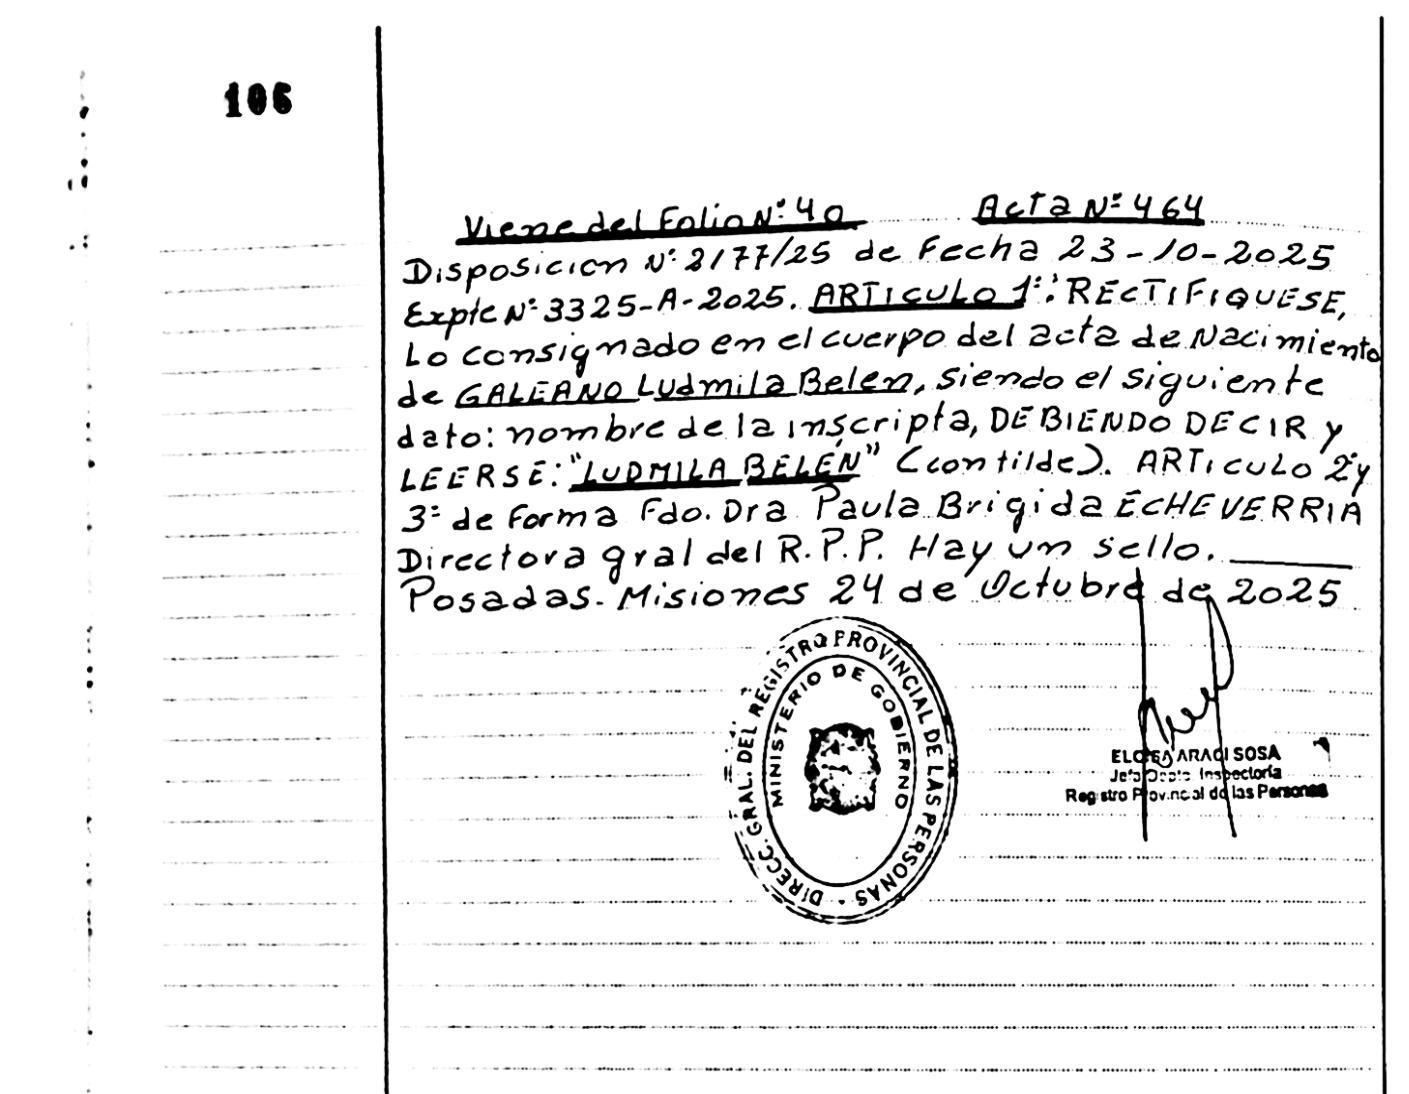 106
Viene del Folio Nº 40 Acta Nº 464
Disposicion Nº 2177/25 de Fecha 23-10-2025
Expte Nº 3325-A-2025. ARTICULO 1º: RECTIFIQUESE,
Lo consignado en el cuerpo del acta de Nacimiento
de GALEANO Ludmila Belen, siendo el siguiente
dato: nombre de la inscripta, DEBIENDO DECIR y
LEERSE: "LUDMILA BELÉN" (con tilde). ARTICULO 2º y
3º de Forma Fdo. Dra Paula Brigida ECHEVERRIA
Directora gral del R.P.P. Hay un sello.
Posadas. Misiones 24 de Octubre de 2025
DIRECC. GRAL. DEL REGISTRO PROVINCIAL DE LAS PERSONAS
MINISTERIO DE GOBIERNO
ELOISA ARACI SOSA
Jefa Dpto. Inspectoría
Registro Provincial de las Personas